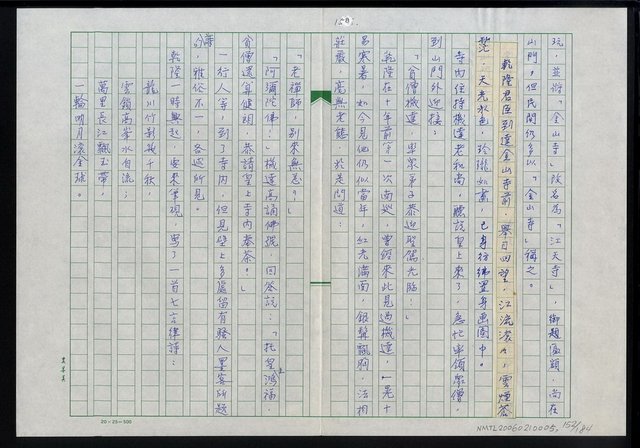 158
玩,並將「金山寺」改名為「江天寺」,御題匾額,尚在
山門,但民間仍多以「金山寺」稱之。
乾隆君臣到達金山寺前,舉目四望,江流滾滾,雲煙蒼
茫,天光水色,玲瓏如畫,已身彷彿置身畫圖中。
寺內住持機達老和尚,聽說皇上來了,急忙率領眾僧,
到山門外迎接:
「貧僧機達,率眾弟子恭迎聖駕光臨。」
乾隆在十年前第一次南巡,曾經來此見過機達,一晃十
易寒暑,如今見他仍似當年,紅光滿面,銀髯飄胸,法相
莊嚴,毫無老態,於是問道:
「老禪師,別來無恙?」
「阿彌陀佛!」機達高誦佛號,回答說:「托皇上鴻福,
貧僧還算健朗,恭請皇上寺內奉茶。」
一行人等,到了寺內,但見壁上多處留有騷人墨客所題
詩句,雅俗不一,各述所見。
乾隆一時興起,要來筆硯,寫了一首七言律詩:
龍川竹影幾千秋,
雲鎖高峯水自流
萬里長江飄玉帶,
一輪明月滾金球。
20×25=500
NMTL20060210005, 152/184